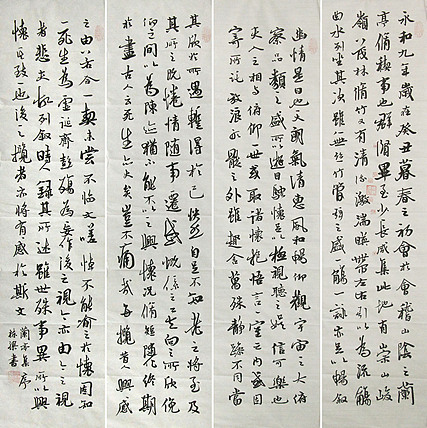 永和九年歲在癸丑暮春之初會於會稽山陰之蘭
亭脩禊事也群賢畢至少長咸集此地有崇山峻
嶺茂林脩竹又有清流激湍暎帶左右引以為流觴
曲水列坐其次雖無絲竹管弦之盛一觴一詠亦足以暢敘
幽情是日也天朗氣清惠風和暢仰觀宇宙之大俯
察品類之盛所以遊目騁懷足以極視聽之娛信可樂也
夫人之相與俯仰一世或取諸懷抱悟言一室之內或因
寄所託放浪形骸之外雖趣舍萬殊靜躁不同當
其欣於所遇暫得於己快然自足不知老之將至及
其所之既倦情隨事遷感慨係之矣向之所欣俛
仰之間以為陳迹猶不能不以之興懷況脩短隨化終期
於盡古人云死生亦大矣豈不痛哉每攬昔人興感
之由若合一契未嘗不臨文嗟悼不能喻之於懷固知
一死生為虛誕齊彭殤為妄作後之視今亦由今之視
昔悲夫故列敘時人錄其所述雖世殊事異所以興
懷其致一也後之攬者亦將有感於斯文
蘭亭集序
書